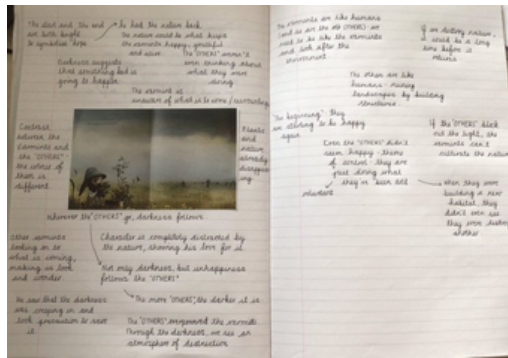 The start and the end
are both bright
to symbolise hope
he had the nature back
The nature could be what keeps
the varmints happy, youthful
and alive
The "OTHERS" weren't
even thinking about
what they were
doing
Darkness suggests
that something bad is
going to happen
The varmint is
unaware of what is to come / surrounding
Contrast
between the
varmints and
the "OTHERS" -
the colour of
them is
different
Plants
and
nature
already
disappear
ing
Wherever the "OTHERS" go, darkness follows
Other varmints
looking on to
what is coming,
making us look
and wonder
Character is completely distracted by
the nature, showing his love for it
Not only darkness, but unhappiness
follows the "OTHERS"
The more "OTHERS", the darker it is
He saw that the darkness
was creeping in and
took precaution to save
it
The "OTHERS" overpowered the varmints
Through the darkness, we see an
atmosphere of destruction
The varmints are like humans
and so are the OTHERS we
need to be like the varmints
and look after the
environment
If we destroy nature,
could be a long
time before it
returns
The others are like
humans - ruining
landscapes by building
structures
"The beginning" - they
are starting to be happy
again
Even the "OTHERS" didn't
seem happy - theme
of control - they are
just doing what
they've been told
If the "OTHERS" block
out the light, the
varmints can't
cultivate the nature
when they were
building a new
habitat, they
didn't even see
they were destroying
another